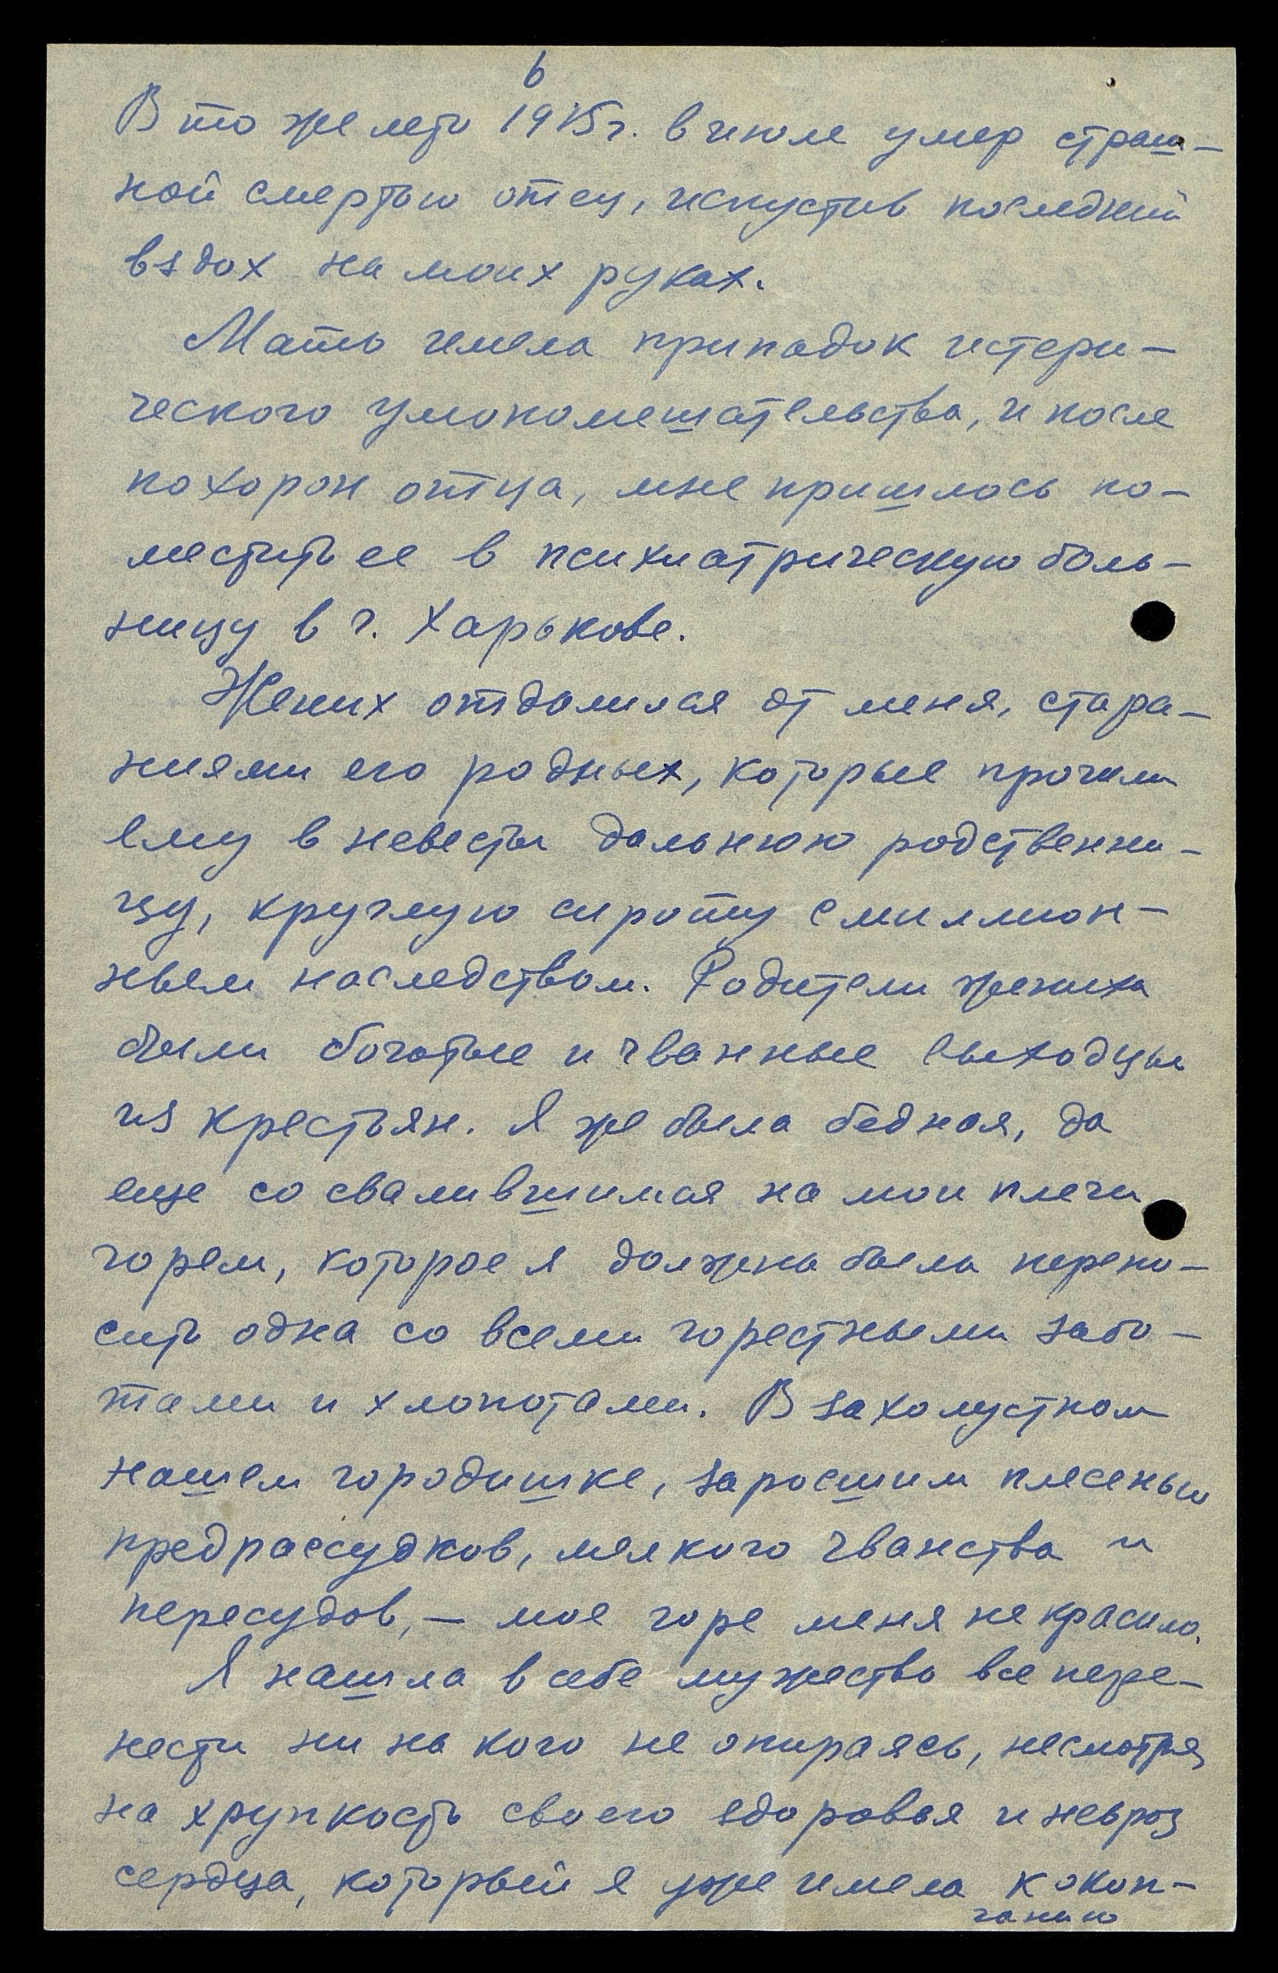 6
В то же лето 1915 г. в июле умер страш-
ной смертью отец, искустив последний
вздох на моих руках.
Мать имела припадок истери-
ческого умопомешательства, и после
похорон отца, мне пришлось по-
местить ее в психиатрическую боль-
ницу в г. Харькове.
Жених отдалился от меня, стара-
ниями его родных, которые прочили
ему в невесты дальнюю родственни-
цу, круглую сироту с миллион-
ным наследством. Родители жениха
были богатые и чванные выходцы
из крестьян. Я же была бедная, да
еще со свалившимся на мои плечи
горем, которое я должна была перено-
сить одна со всеми горестными забо-
тами и хлопотами. В захолустном
нашем городишке, заросшим плесенью
предрассудков, мелкого чванства и
пересудов, — мое горе меня не красило.
Я нашла в себе мужество все пере-
нести ни на кого не опираясь, несмотря
на хрупкость своего здоровья и невроз
сердца, который я уже имела к окон-
чанию